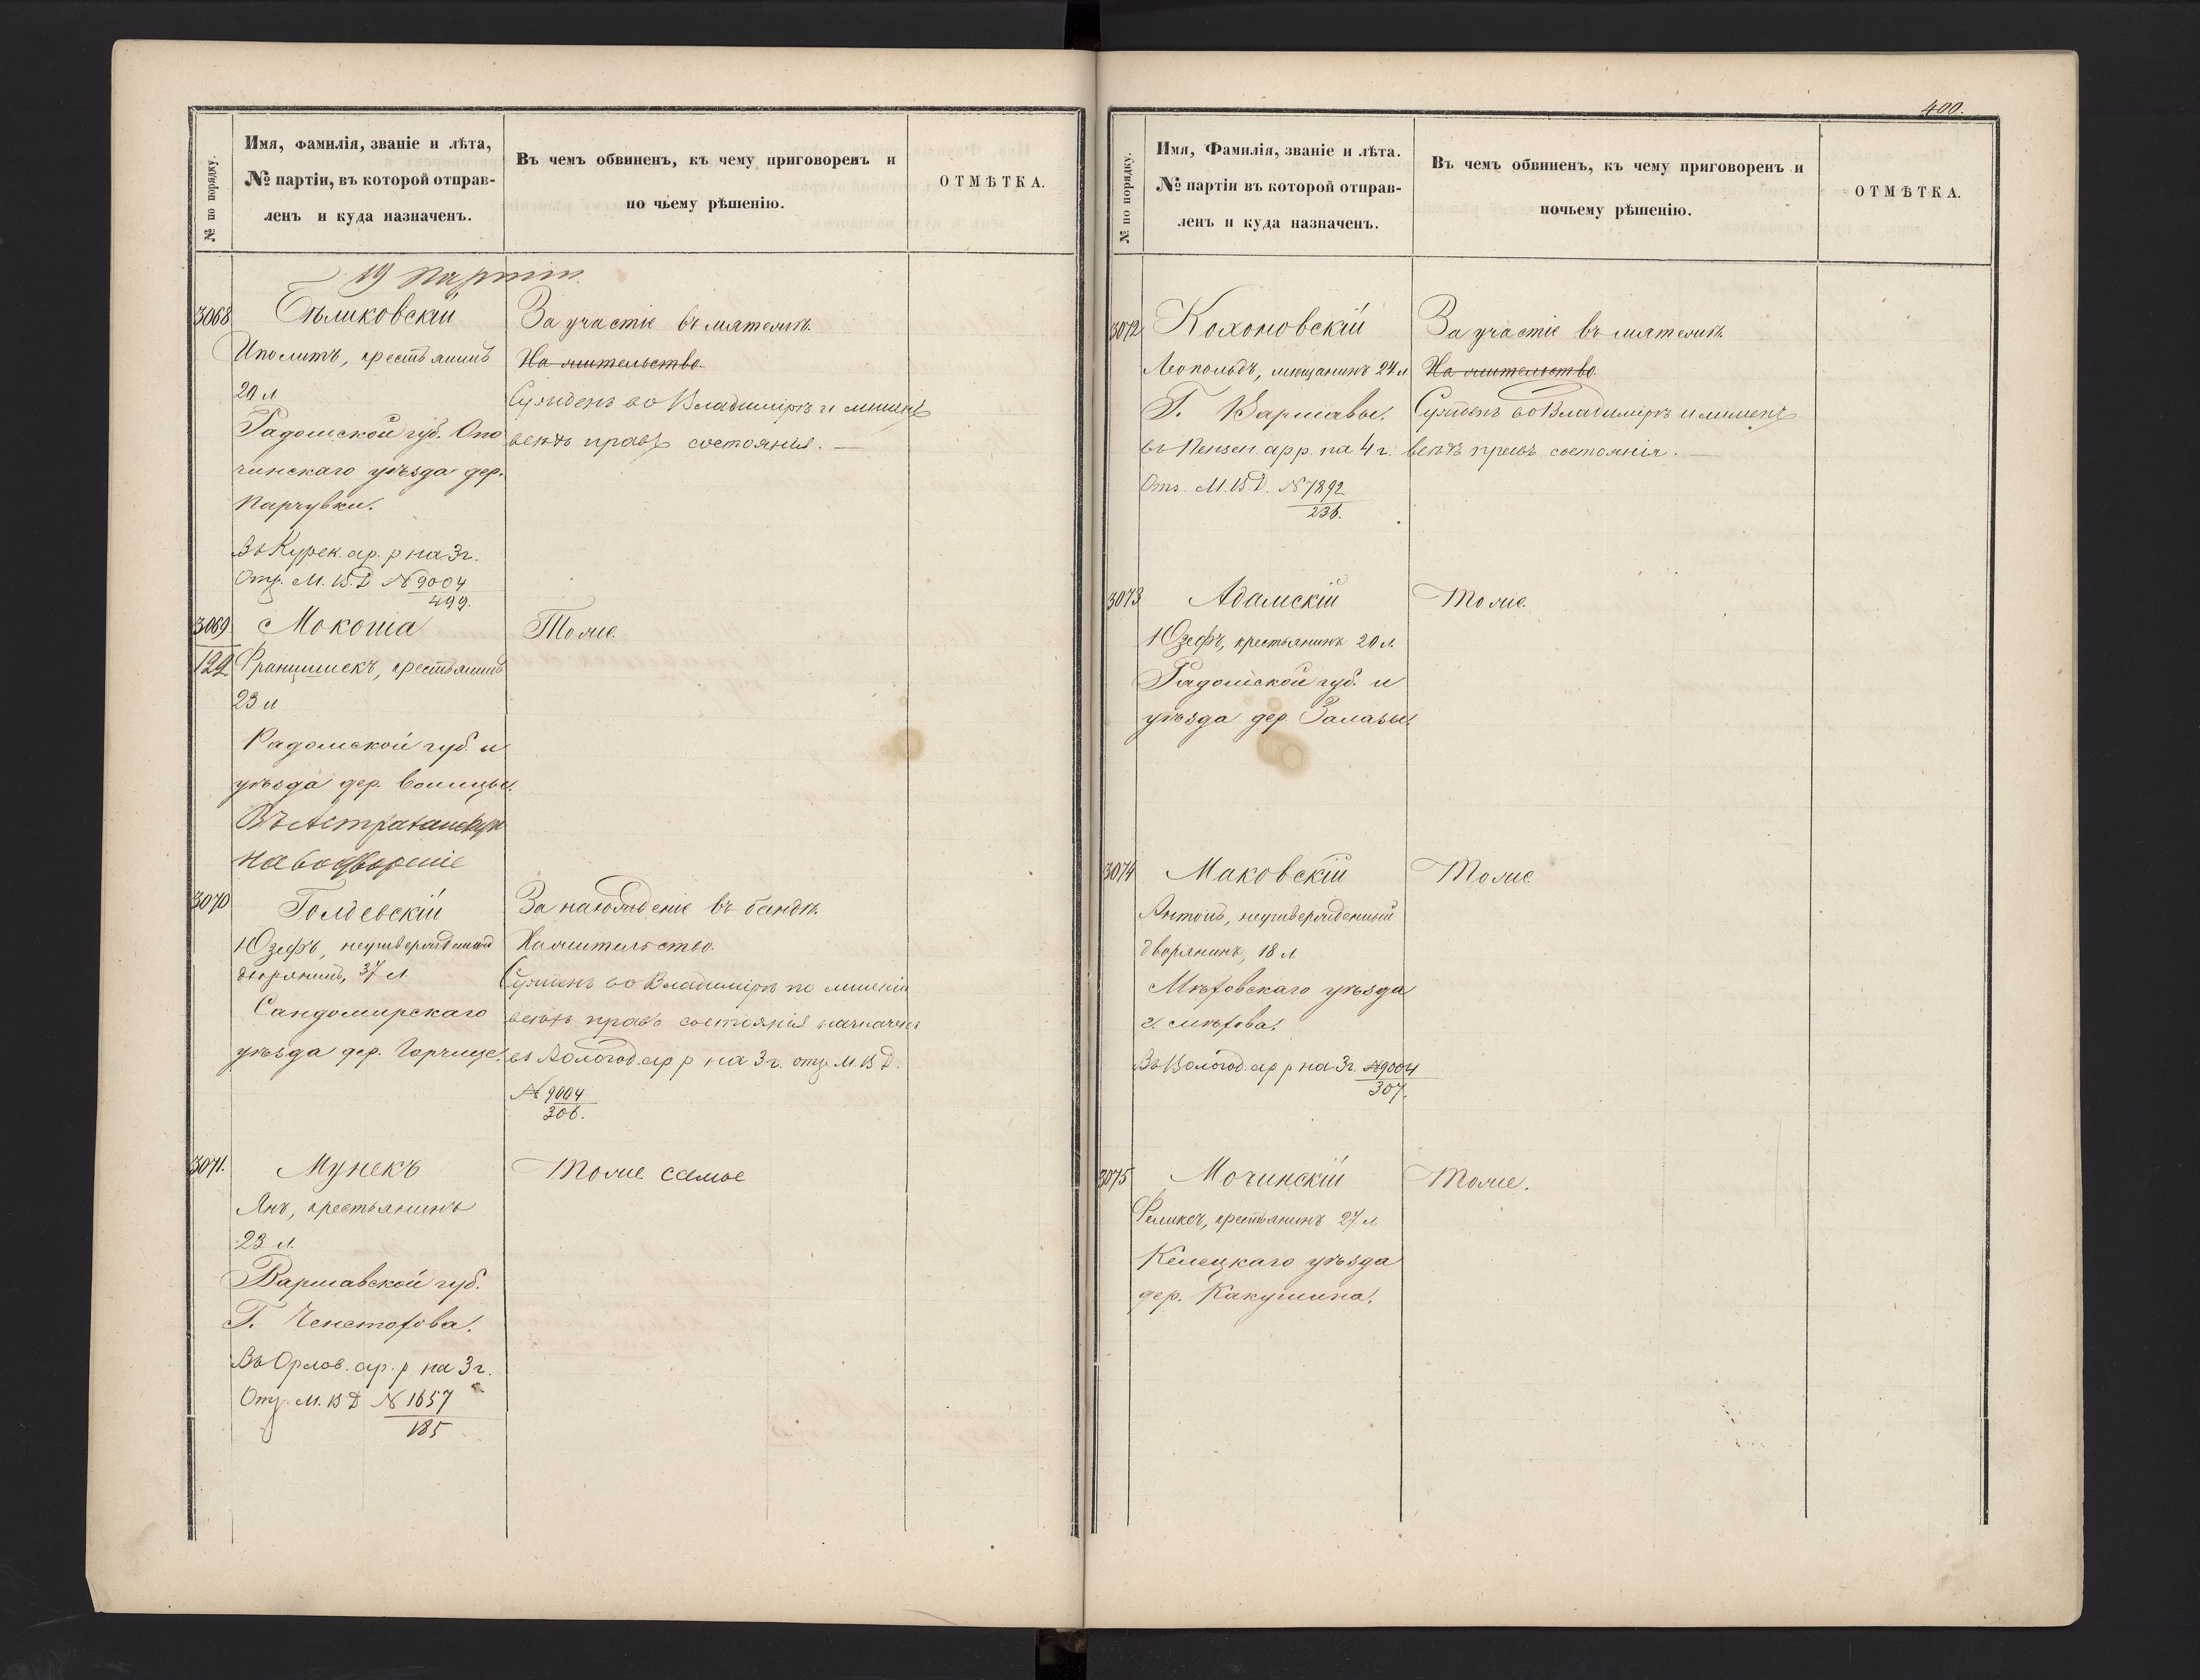 № по порядку.
Имя, Фамилія, званіе и лѣта,
№ партіи, въ которой отправ-
ленъ и куда назначенъ.
Въ чемъ обвиненъ, къ чему приговоренъ и
по чьему рѣшенію.
ОТМѢТКА.
19 партіи
3068
Бѣликовскій
Иполитъ, крестьянинъ
20 л
Радомской губ. Опо
чинскаго уѣзда дер.
Парчувки.
Въ Курск. ар. р на 3 г.
Отз. М. В. Д № 9004
499.
За участіе въ мятежѣ.
На жительство
Сужденъ во Владимірѣ и лишенъ
всѣхъ правъ состоянія. —
3069
124
Мокоша
Францишекъ, крестьянинъ
23 л
Радомской губ. и
уѣзда дер.
Въ Астраханскую
на водвореніе
Тоже.
3070
Голдевскій
Юзефъ, неутвержденный
дворянинъ, 37 л
Сандомирскаго
уѣзда дер. Горчице.
За нахожденіе въ бандѣ.
На жительство.
Сужденъ во Владимірѣ по лишеніи
всѣхъ правъ состоянія назначенъ
въ Вологод. ар р на 3 г. отз. М. В Д.
№ 9004
306.
3071.
Мунекъ
Янъ, крестьянинъ
23 л.
Варшавской губ.
Г. Ченстохова.
Въ Орлов. ар. р на 3 г.
Отз. М. В Д № 1657
185
Тоже самое
400.
№ по порядку.
Имя, Фамилія, званіе и лѣта.
№ партіи въ которой отправ-
ленъ и куда назначенъ.
Въ чемъ обвиненъ, къ чему приговоренъ и
почьему рѣшенію.
ОТМѢТКА.
3072
Кохоновскій
Леопольдъ, мѣщанинъ 24 л
Г. Варшавы.
въ Пензен. ар р. на 4 г.
Отз. М. В. Д. № 7892
236.
За участіе въ мятежѣ.
На жительство
Сужденъ во Владимірѣ и лишенъ
всѣхъ правъ состоянія. —
3073
Адамскій
Юзефъ, крестьянинъ 20 л.
Радомской губ. и
уѣзда дер. Залазы
Тоже.
3074
Маковскій
Антонъ, неутвержденный
дворянинъ, 18 л
Мѣховскаго уѣзда
г. Мѣхова.
Въ Вологод. ар р на 3 г. № 9004
307.
Тоже
3075
Мочинскій
Феликсъ, крестьянинъ 27 л
Келецкаго уѣзда
дер.
Тоже.